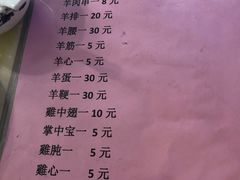 羊肉串一 8 元
羊排一 20 元
羊腰一 30 元
羊筋一 5 元
羊心一 5 元
羊蛋一 30 元
羊鞭一 30 元
雞中翅一 10 元
掌中宝一 5 元
雞肫一 5 元
雞心一 5 元